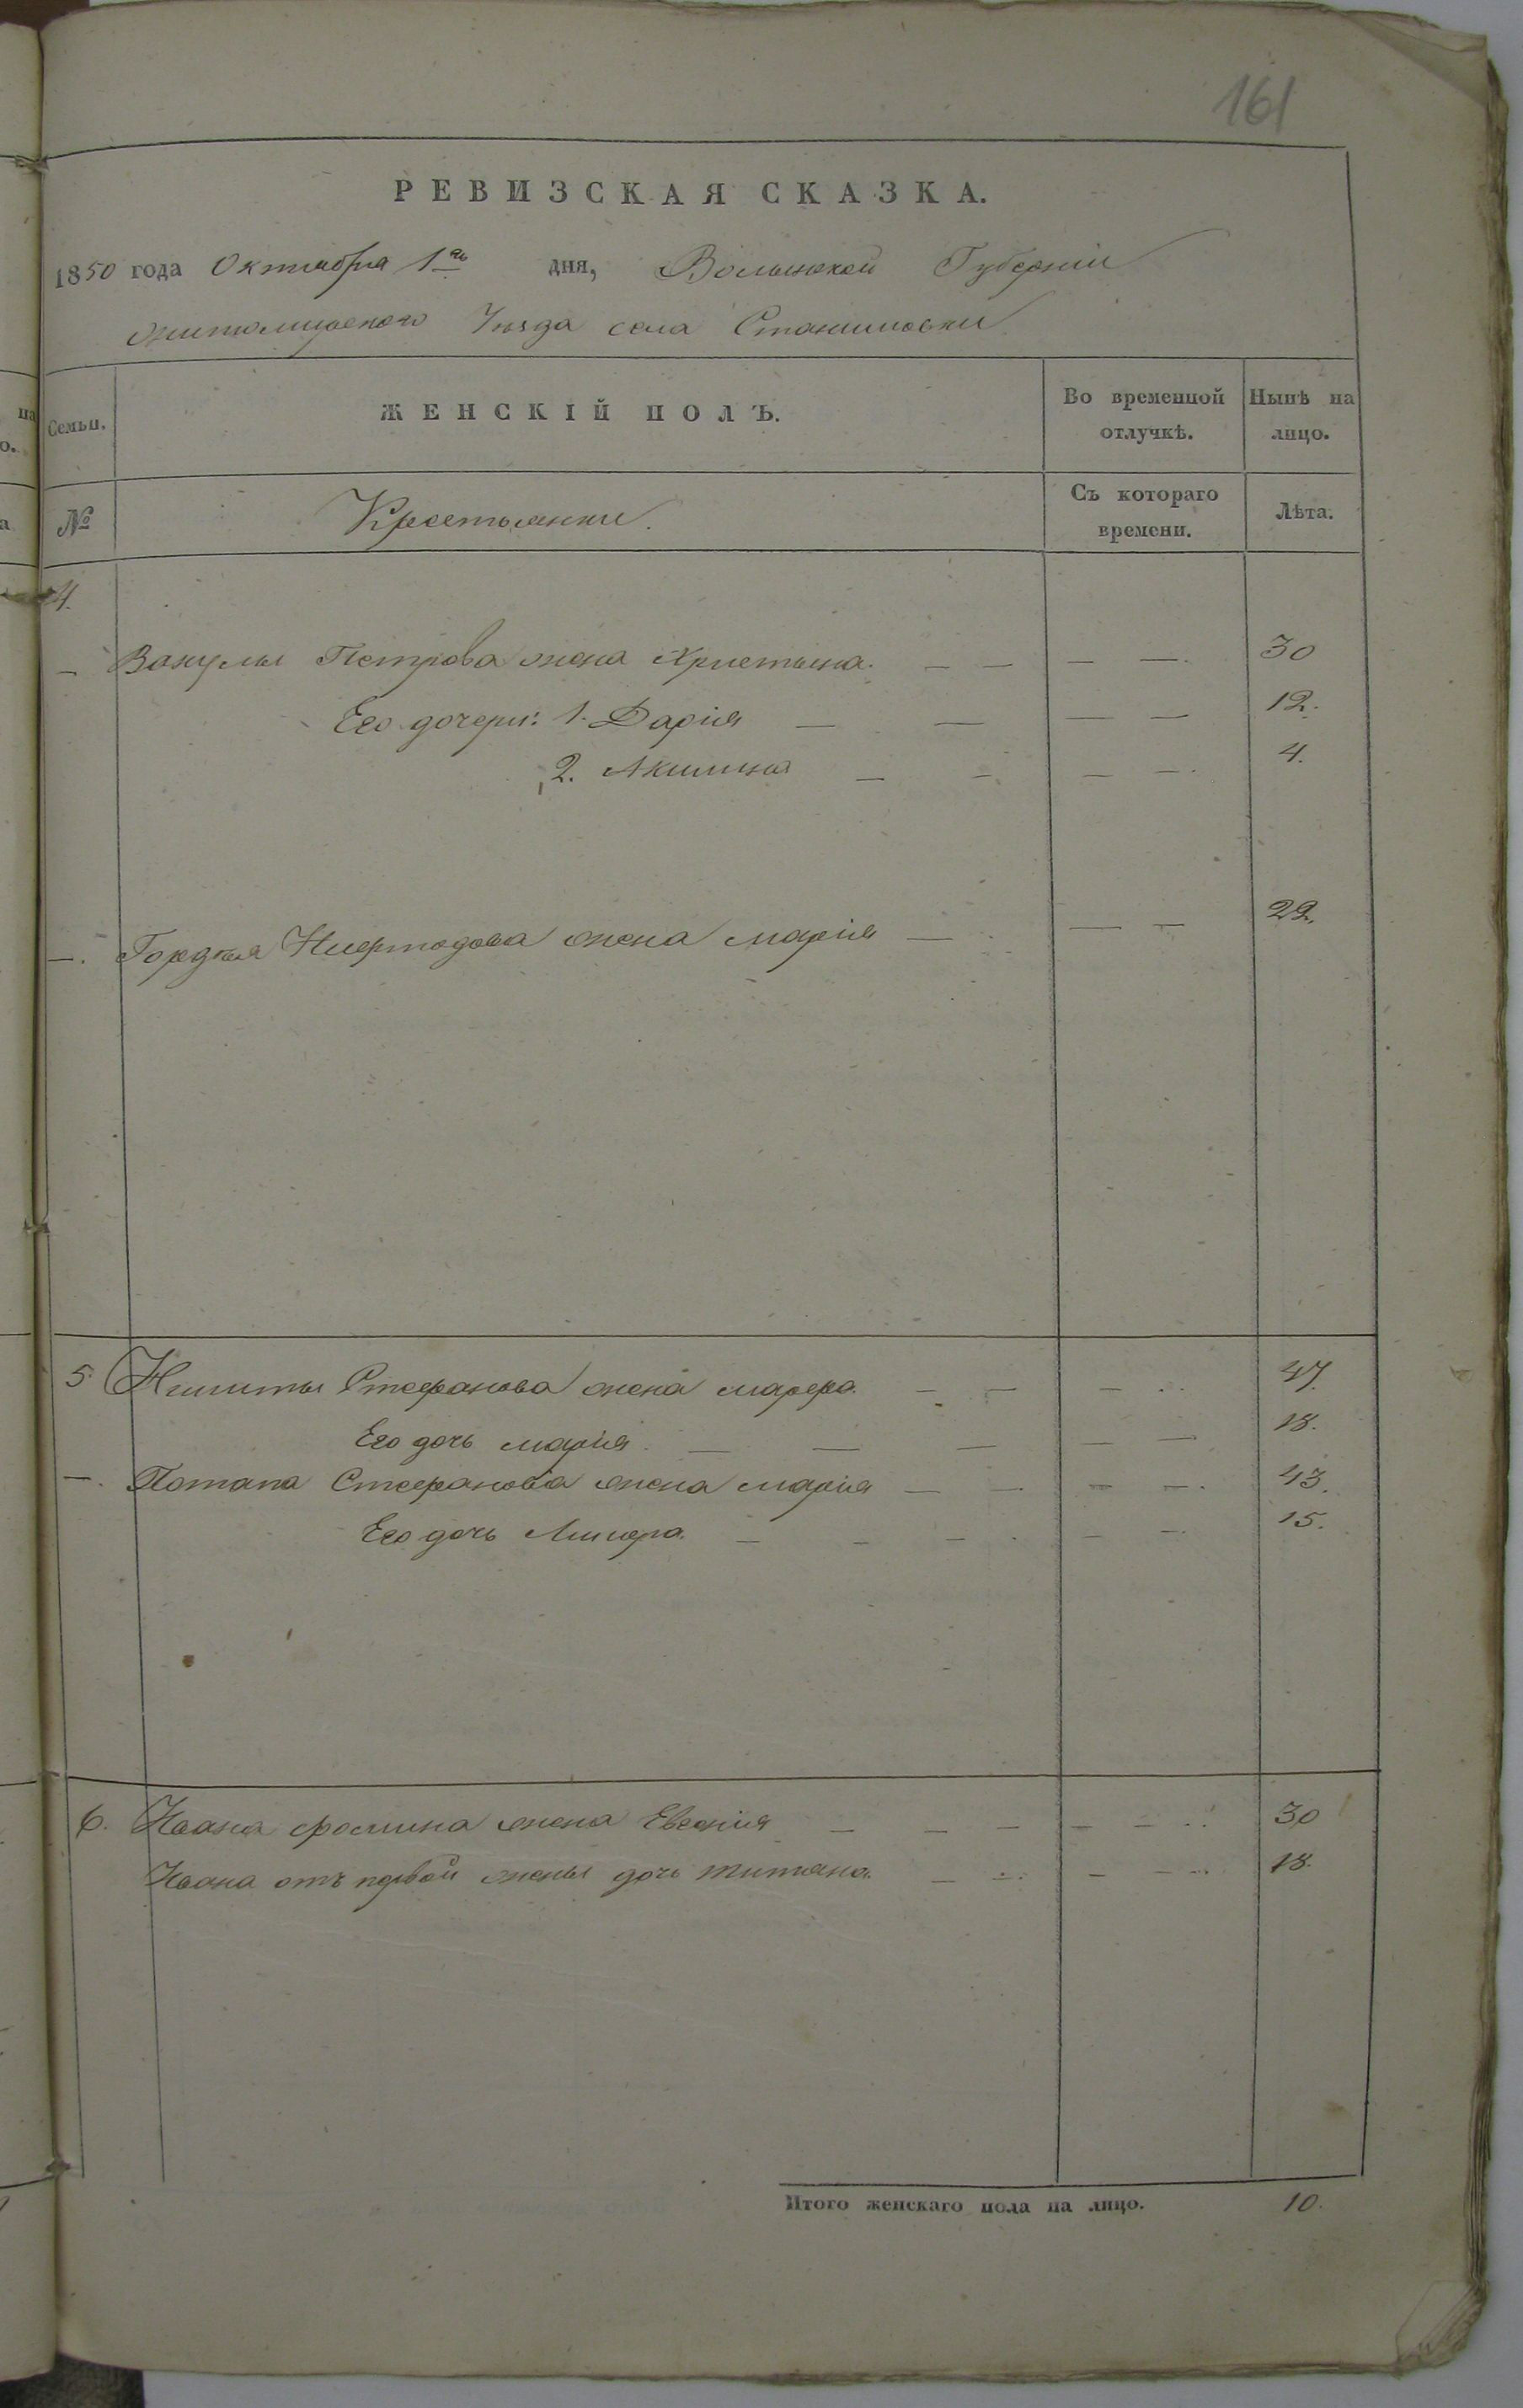 161
РЕВИЗСКАЯ СКАЗКА.
1850 года Октября 1го дня, Волынской Губернии
Житомирского Уѣзда села Станишовки
Семьи. ЖЕНСКІЙ ПОЛЪ. Во временной отлучкѣ. Нынѣ на лицо.
№ Крестьянки. Съ котораго времени. Лѣта.
4.
— Вакулы Петрова жена Христина. — — — —. 30
Его дочери: 1. Дарія — — — — 12.
2. Акилина — — — —. 4.
—. Гордѣя жена Марія — — — 22.
5 Никиты Стефанова жена Марфа — — — 47.
Его дочь Марія. — — — — — 18.
—. Потапа Стефанова жена Марія — — — —. 43.
Его дочь — — — — —. 15.
6. Ивана Фомина жена Евгенія — — — — — 30
Ивана отъ первой жены дочь Татіана. — — — — 18.
Итого женскаго пола на лицо. 10.